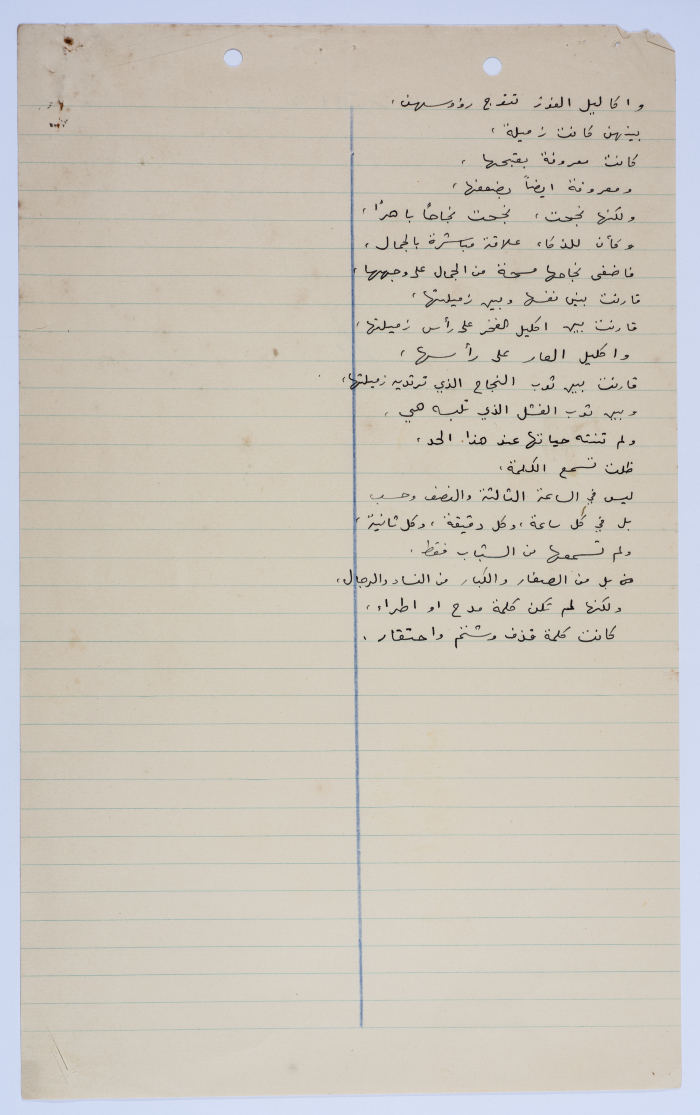 واكاليل الفوز تتوج رؤوسهن ،
بينهن كانت زميلة ،
كانت معروفة بقبحها ،
ومعروفة ايضاً بضعفها ،
ولكنها نجحت ، نجحت نجاحاً باهراً ،
وكأن للذكاء علاقة مباشرة بالجمال ،
فاضفى نجاحها مسحة من الجمال على وجهها ،
قارنت بين نفسها وبين زميلتها ،
قارنت بين اكليل الفخر على رأس زميلتها ،
واكليل العار على رأسها ،
قارنت بين ثوب النجاح الذي ترتديه زميلتها ،
وبين ثوب الفشل الذي تلبسه هي .
ولم تنته حياتها عند هذا الحد ،
ظلت تسمع الكلمة ،
ليس في الساعة الثالثة والنصف وحسب
بل في كل ساعة ، وكل دقيقة ، وكل ثانية ،
ولم تسمعها من الشباب فقط .
بل من الصغار والكبار من النساء والرجال ،
ولكنها لم تكن كلمة مدح او اطراء ،
كانت كلمة قذف وشتم واحتقار .